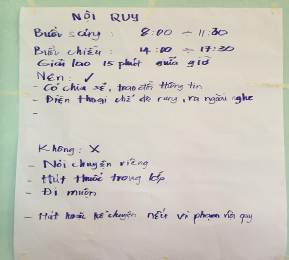 NỘI QUY
Buổi sáng : 8:00 ÷ 11:30
Buổi chiều : 14:00 ÷ 17:30
Giải lao 15 phút giữa giờ
Nên: ✓
- Có chia sẻ, trao đổi thông tin
- Điện thoại chế độ rung, ra ngoài nghe
-
Không: X
- Nói chuyện riêng
- Hút thuốc trong lớp
- Đi muộn
- Hát hoặc kể chuyện nếu vi phạm nội quy